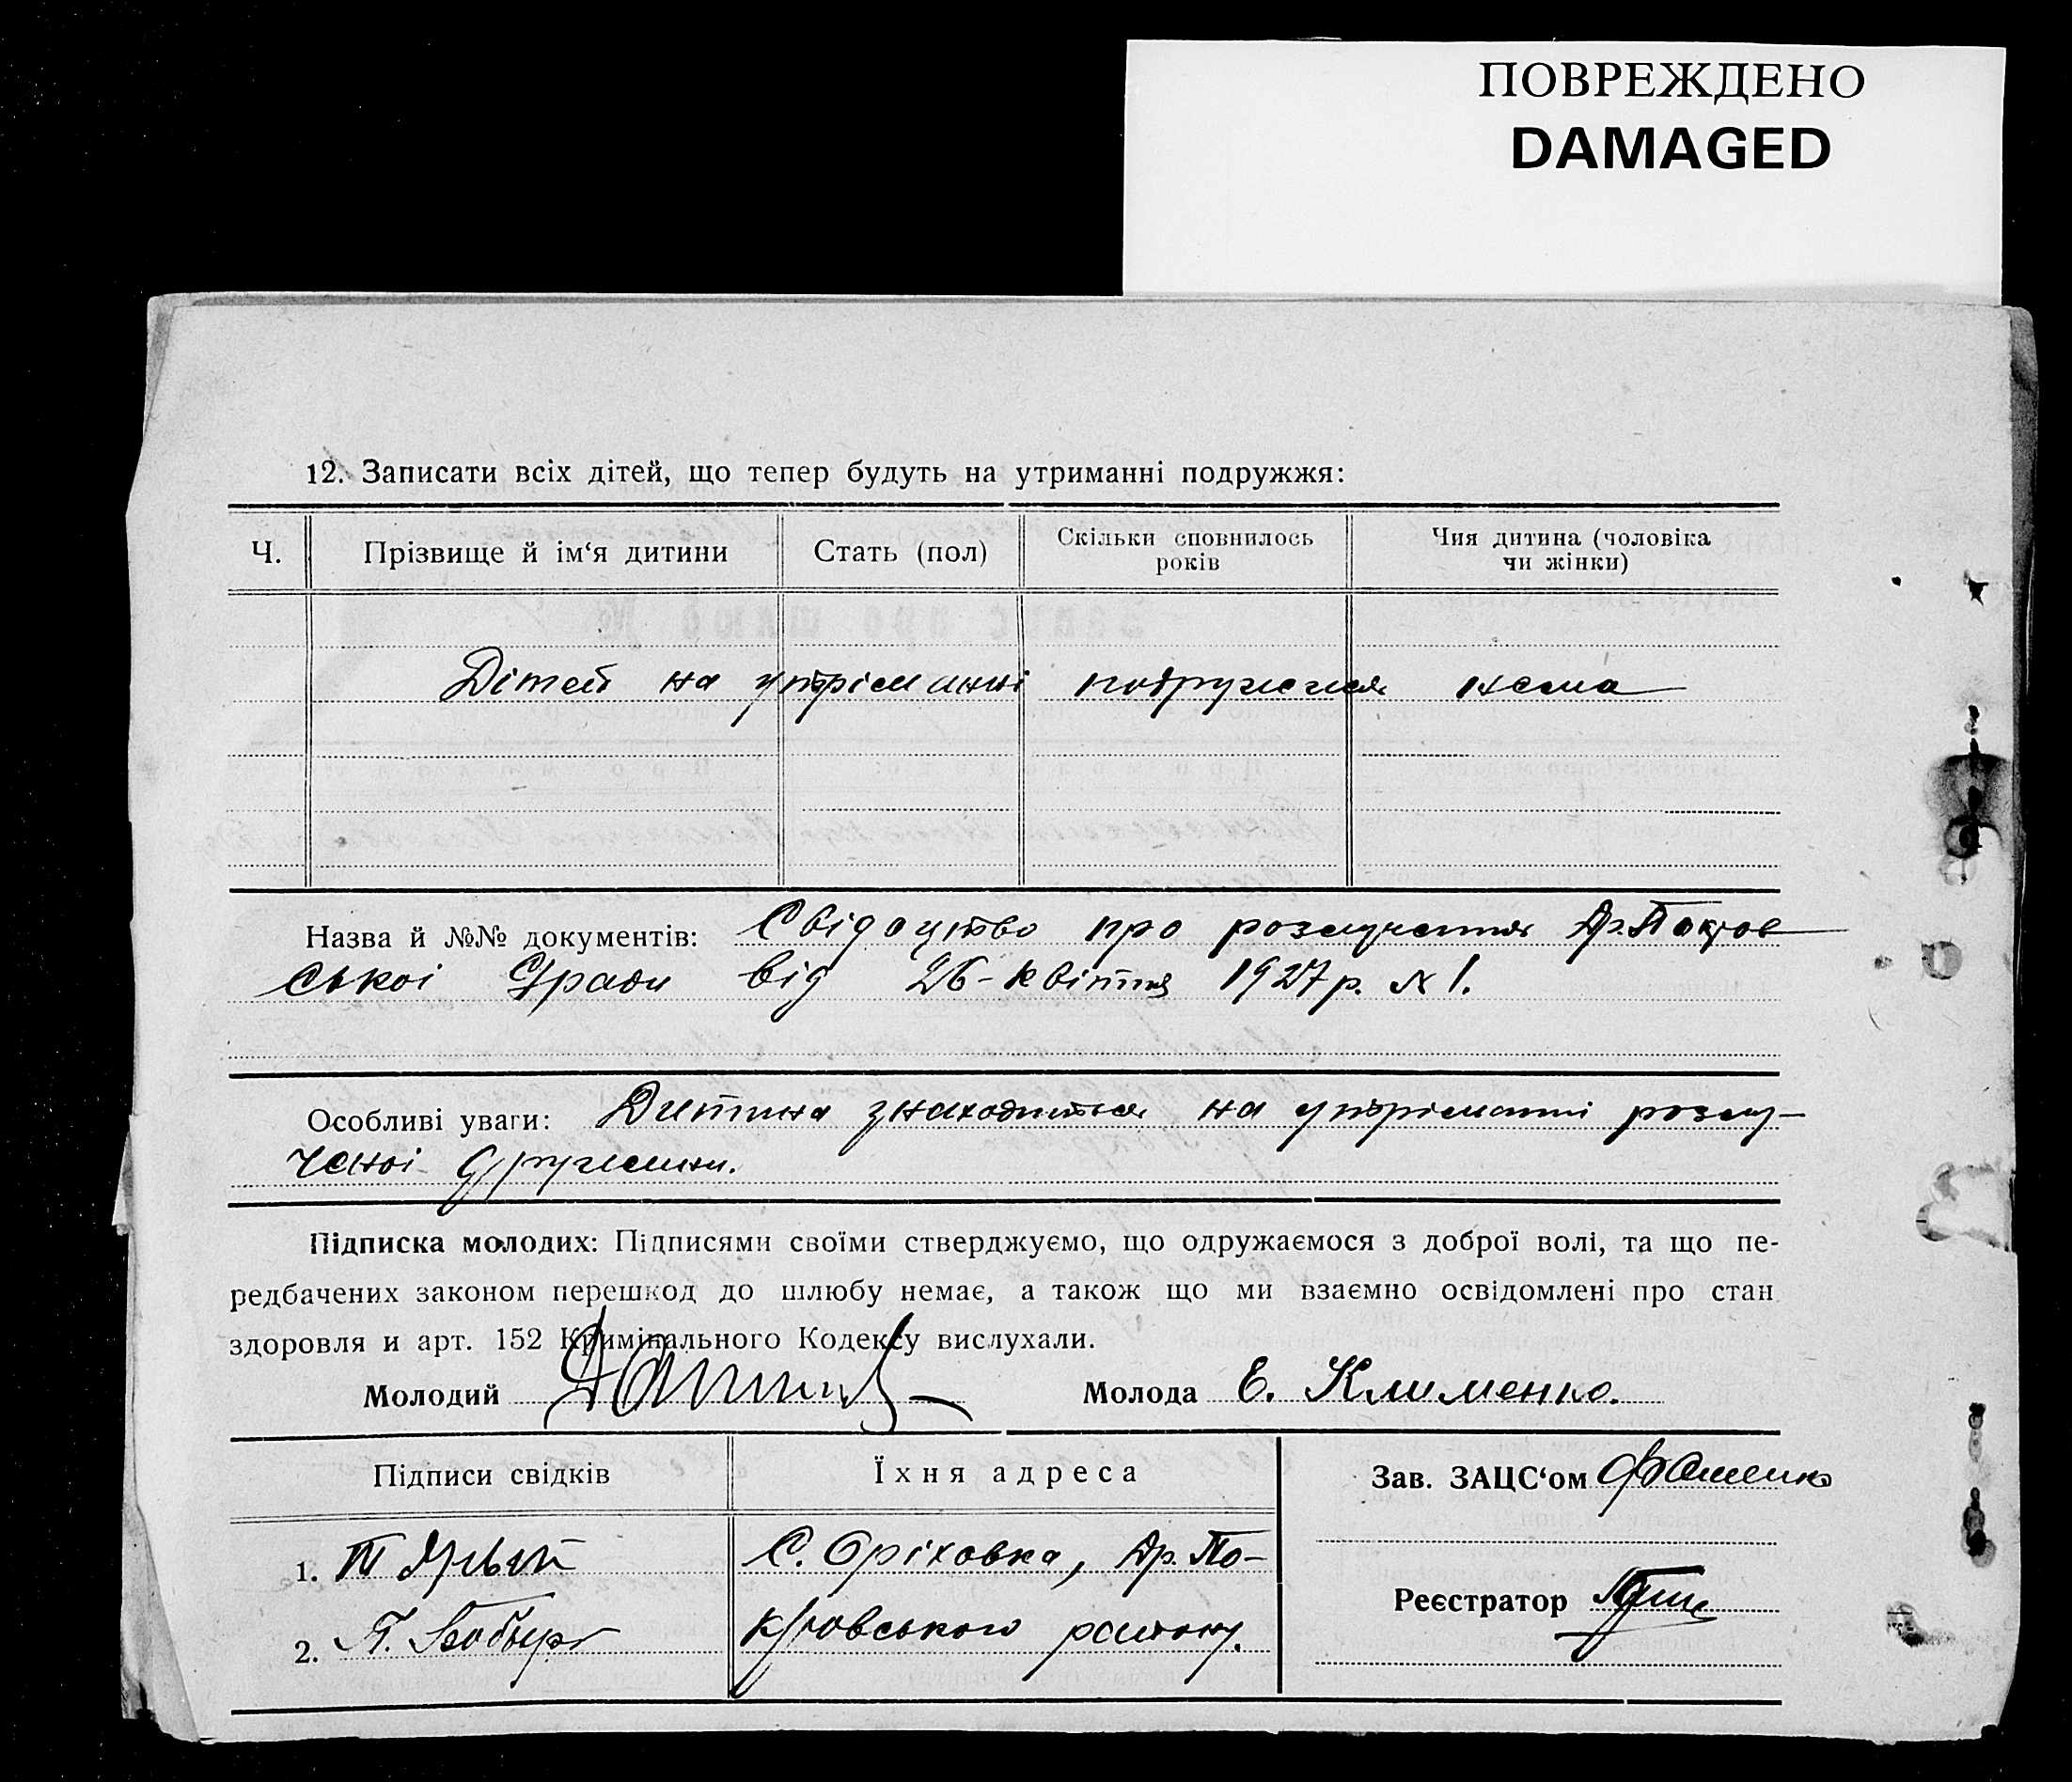 ПОВРЕЖДЕНО
DAMAGED
12. Записати всіх дітей, що тепер будуть на утриманні подружжя:
Ч. Прізвище й ім‘я дитини Стать (пол) Скільки сповнилось років Чия дитина (чоловіка чи жінки)
Дітей на утріманні подружжя нема
Назва й №№ документів: Свідоцтво про розлучення Др. Покров
ської Сради від 26-квітня 1927 р. № 1.
Особливі уваги: Дитина знаходиться на утріманні розлу-
ченої дружини.
Підписка молодих: Підписями своїми стверджуємо, що одружаємося з доброї волі, та що пе-
редбачених законом перешкод до шлюбу немає, а також що ми взаємно освідомлені про стан
здоровля и арт. 152 Кримінального Кодексу вислухали.
Молодий Молода Е. Клименко.
Підписи свідків Їхня адреса Зав. ЗАЦС‘ом
1. С. Оріховка, Др. По-
Реєстратор
2. П. кровського району.